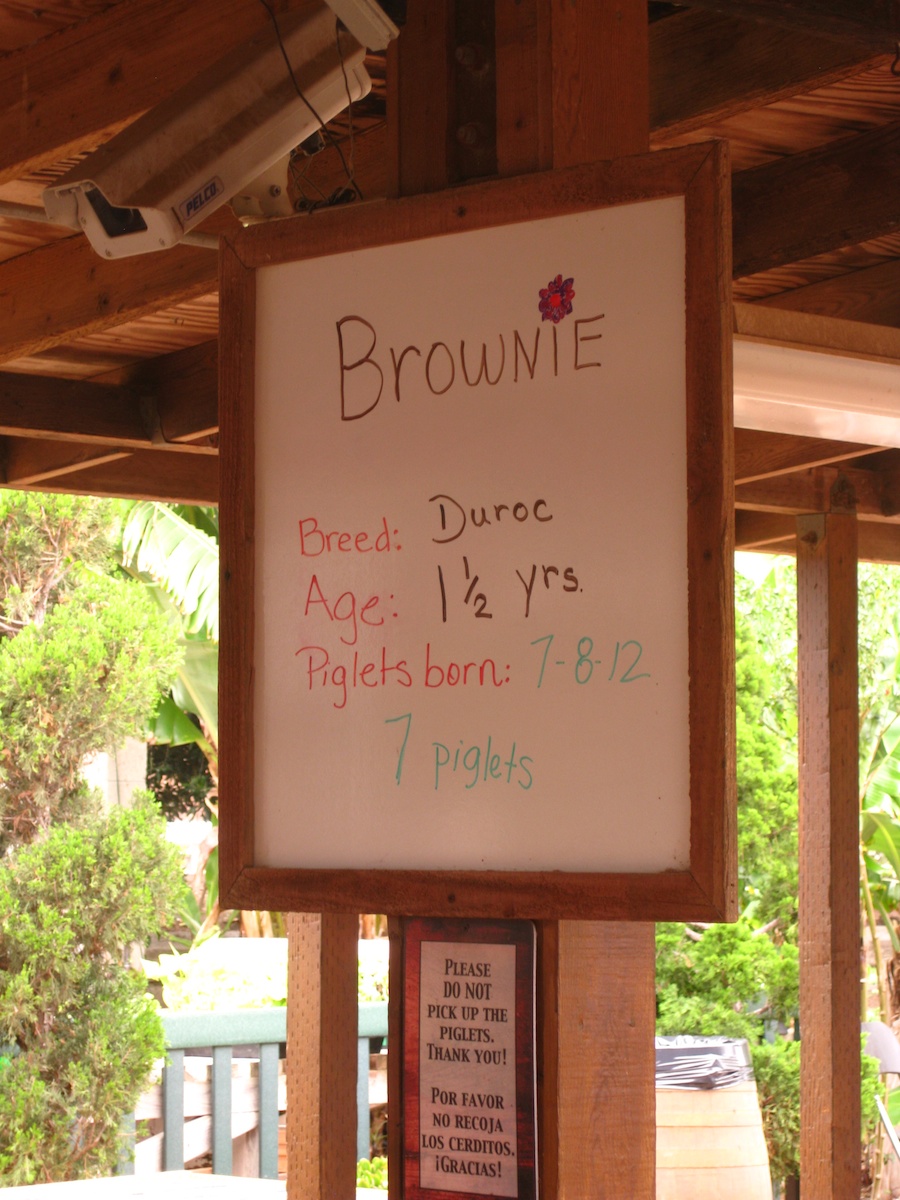 PELCO
BrowNiE
Breed: Duroc
Age: 1 1/2 yrs.
Piglets born: 7-8-12
7 piglets
PLEASE
DO NOT
PICK UP THE
PIGLETS.
THANK YOU!
POR FAVOR
NO RECOJA
LOS CERDITOS.
¡GRACIAS!